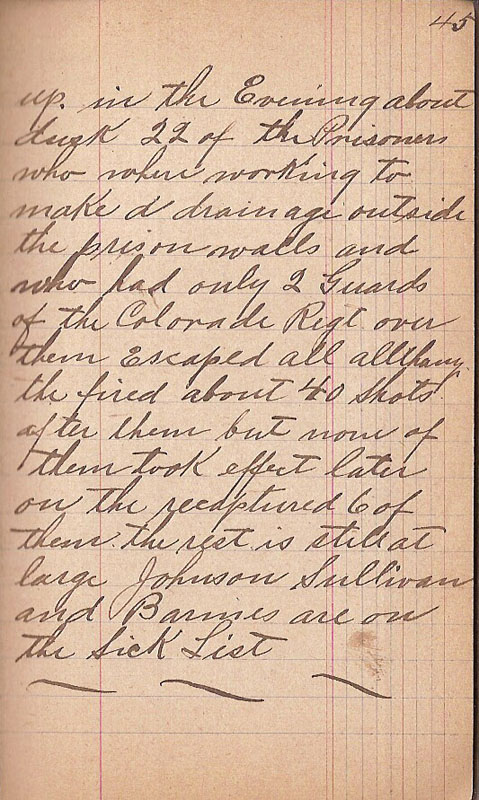 45
up. in the Evening about
dusk 22 of the Prisoners
who where working to
make a drainage outside
the prison walls and
who had only 2 Guards
of the Colorado Regt over
them Escaped all allthoug
the fired about 40 shots
after them but none of
them took effect later
on the recaptured 6 of
them the rest is still at
large Johnson Sullivan
and Barnes are on
the Sick List